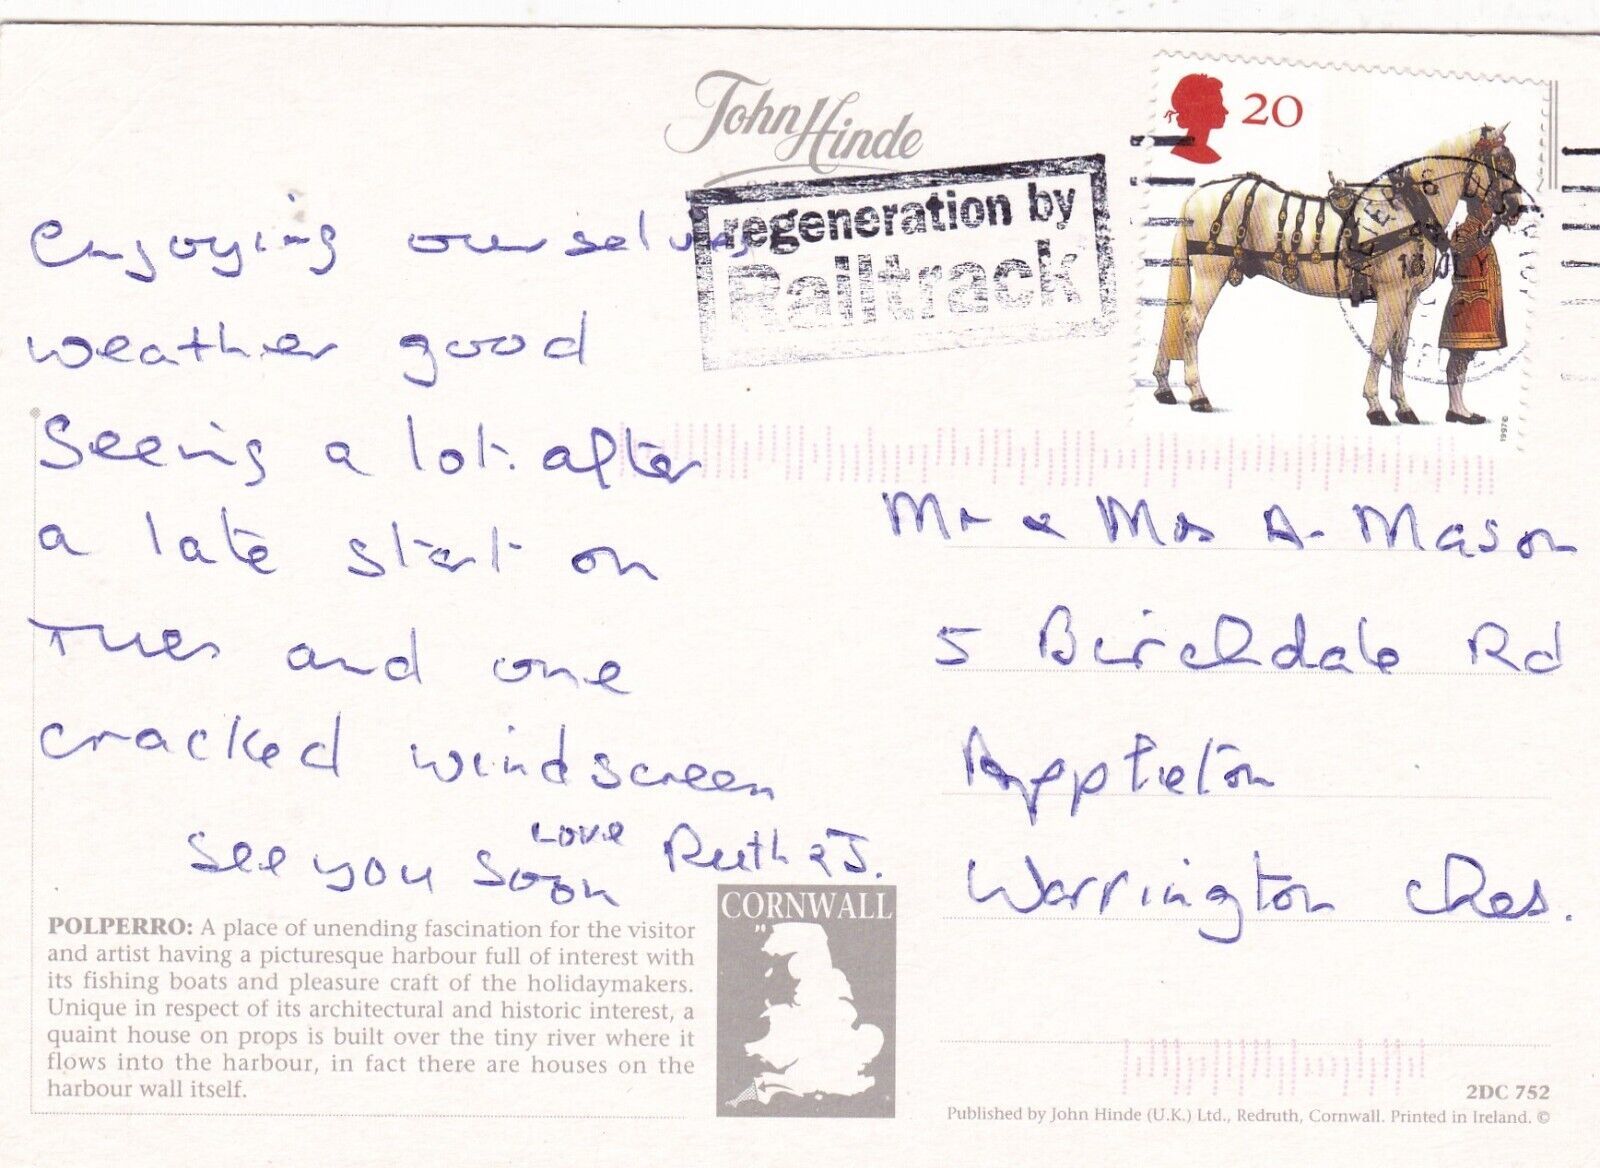 John Hinde
regeneration by
Railtrack
20
1997©
enjoying ourselves
weather good
Seeing a lot after
a late start on
Tues and one
cracked windscreen
See you soon
Love Ruth & J.
Mr & Mrs A. Mason
5 Birchdale Rd
Appleton
Warrington Ches.
POLPERRO: A place of unending fascination for the visitor
and artist having a picturesque harbour full of interest with
its fishing boats and pleasure craft of the holidaymakers.
Unique in respect of its architectural and historic interest, a
quaint house on props is built over the tiny river where it
flows into the harbour, in fact there are houses on the
harbour wall itself.
CORNWALL
2DC 752
Published by John Hinde (U.K.) Ltd., Redruth, Cornwall. Printed in Ireland. ©